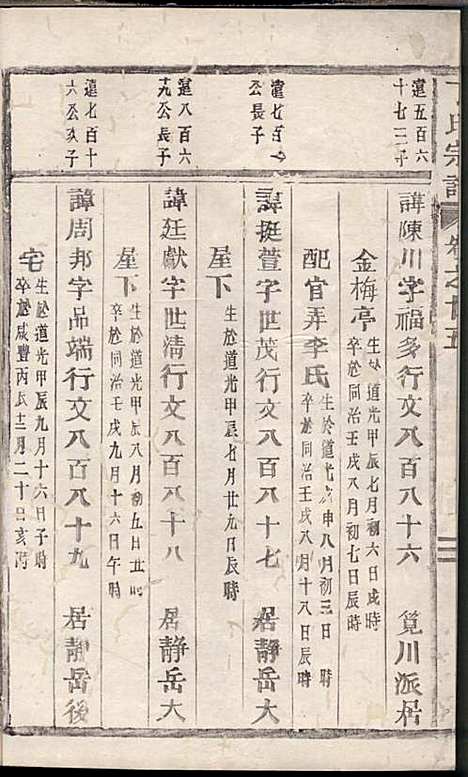 氏宗譜
卷之廿五
遠五百六
十七二子
諱陳川字福多行文八百八十六 筧川派居
金梅亭
道光甲辰七月初六日戌時
卒於同治壬戌八月初七日辰時
配官弄李氏
生於道光 申八月初三日 時
卒於同治壬戌八月十八日辰時
遠七百
公長子
諱挺萱字世茂行文八百八十七 居靜岳大
屋下
生於道光甲辰七月廿九日辰時
遠八百六
九公長子
諱廷獻字世清行文八百八十八 居靜岳大
屋下
生於道光甲辰八月初五日 時
卒於同治壬戌九月十六日午時
遠七百十
六公次子
諱周邦字品端行文八百八十九 居靜岳後
宅
生於道光甲辰九月十六日子時
卒於咸豐丙辰十二月二十日亥時